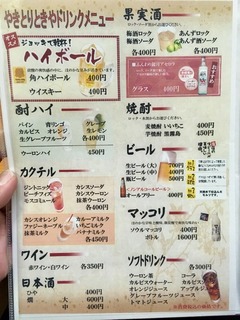 やきとりときやドリンクメニュー
オススメ
ジョッキで乾杯!
ハイボール
角ハイボール 400円
ウイスキー 400円
果実酒
梅酒ロック あんずロック
梅酒ソーダ あんず酒ソーダ
各400円 各400円
グラス 400円
酎ハイ
パイン 青リンゴ グレープ
カルピス オレンジ 生レモン
生グレープフルーツ
各400円
ウーロンハイ 450円
焼酎
麦焼酎 いいちこ 400円
芋焼酎 黒霧島 450円
ビール
生ビール(大) 700円
生ビール(中) 500円
瓶ビール 500円
ノンアルコールビール
オールフリー 400円
カクテル
ジントニック カシスソーダ
ピーチフィズ カシスウーロン
モスコミュール 抹茶ウーロン
各400円
カシスオレンジ カルーアミルク
ファジーネーブル いちごミルク
抹茶ミルク バナナミルク
各450円
マッコリ
ソウルマッコリ 400円
ボトル 1600円
ワイン
赤ワイン・白ワイン 各350円
日本酒
冷や 400円
燗 大 600円
中 400円
ソフトドリンク
各300円
ウーロン茶 コーラ
カルピスウォーター カルピスソーダ
オレンジジュース アップルジュース
グレープフルーツジュース
トマトジュース